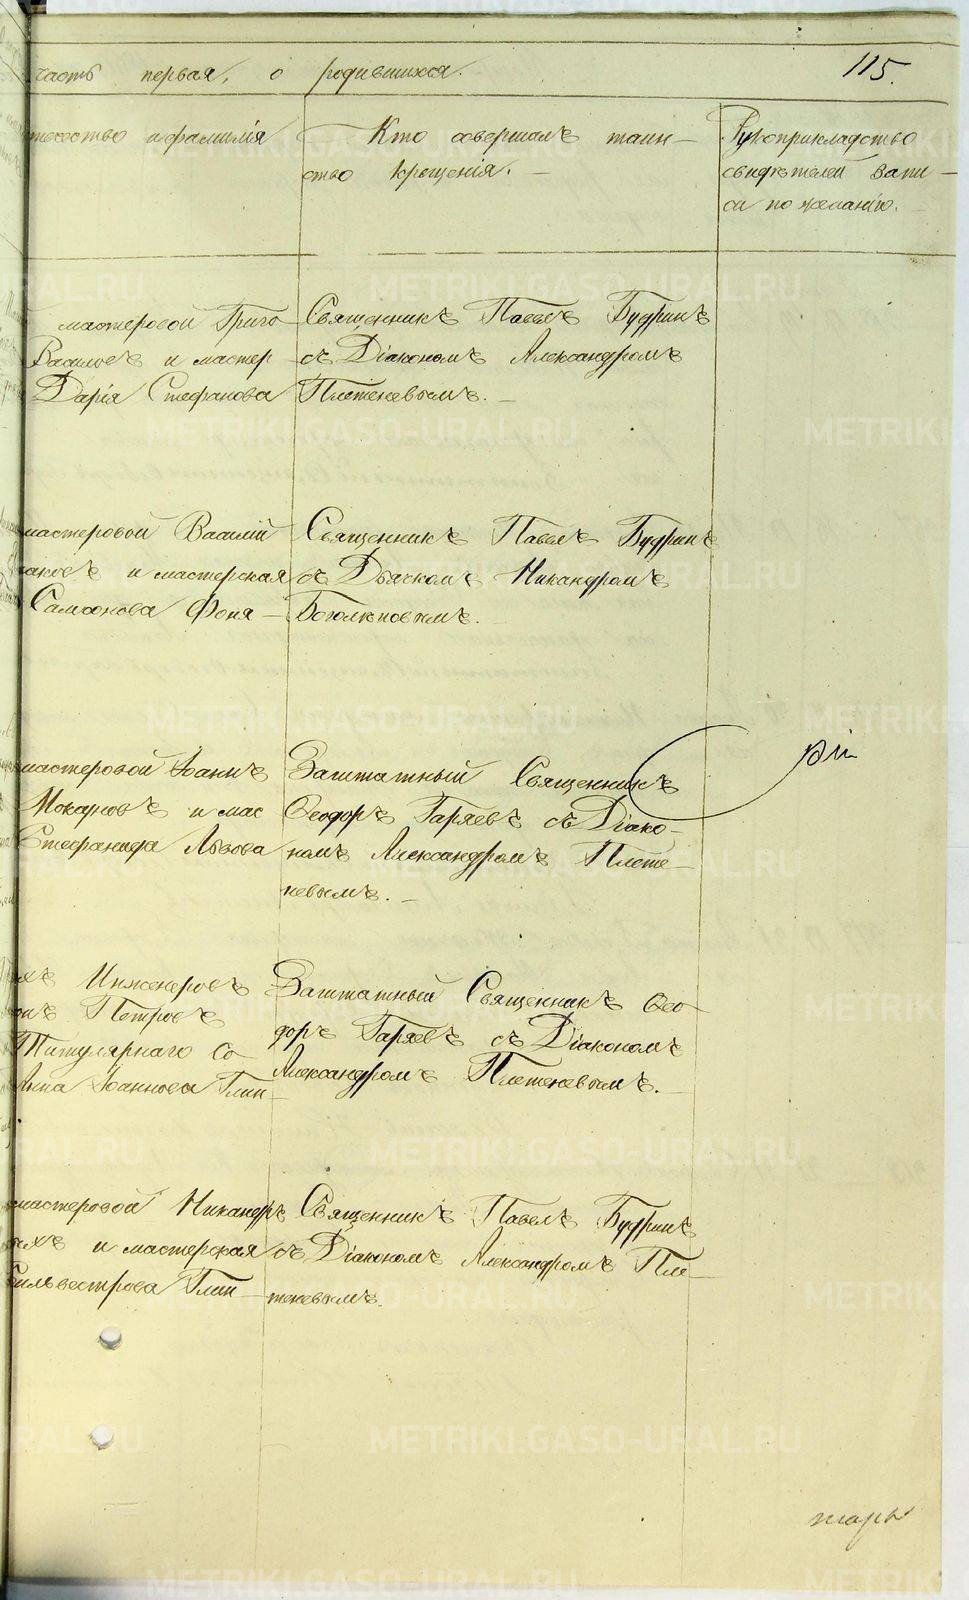 часть первая, о родившихся.
115.
тчество и фамилія
Кто совершалъ таин-
ство крещенія.
Рукоприкладство
свидѣтелей запи-
си по желанію.
мастеровой Григо
Василовъ и мастер
Дарія Стефанова
Священникъ Павелъ Будринъ
съ Діакономъ Александромъ
Плетеневымъ.
мастеровой Василій
аковъ и мастерская
Самсонова Фоня-
Священникъ Павелъ Будринъ
съ Дьячкомъ Никандромъ
Боголюповымъ.
мастеровой Іоаннъ
Мокаровъ и мас
Стефанида Львова
Заштатный Священникъ
Ѳеодоръ Гаряевъ съ Діако-
номъ Александромъ Плете-
невымъ.
хъ Инженеровъ
онъ Петровъ
Титулярнаго Со
Анна Іоаннова Глин-
Заштатный Священникъ Ѳео-
доръ Гаряевъ съ Діакономъ
Александромъ Плетеневымъ.
мастеровой Никандръ
ыхъ и мастерская
Сильвестрова Глин-
Священникъ Павелъ Будринъ
съ Діакономъ Александромъ Пле-
теневымъ.
METRIKI.GASO-URAL.RU